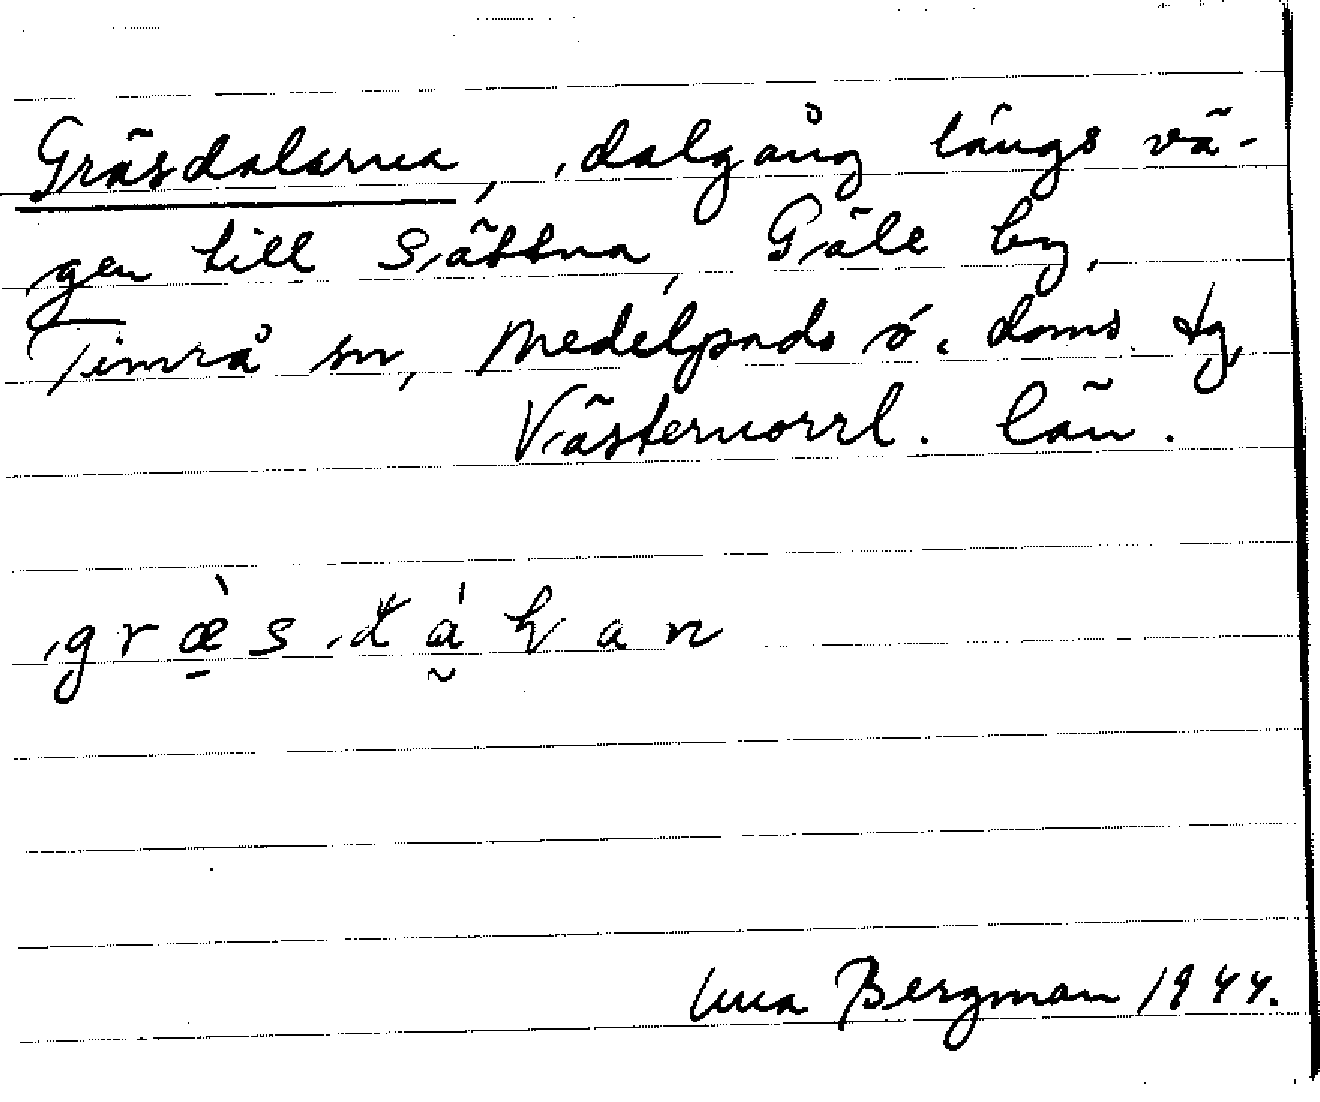 Gräsdalarna, dalgång längs vä-
gen till Sättna, Gäle by,
Timrå sn, Medelpads ö. doms. tg,
Västernorrl. län.
græ̀sdáɽan
Bergman 1944.